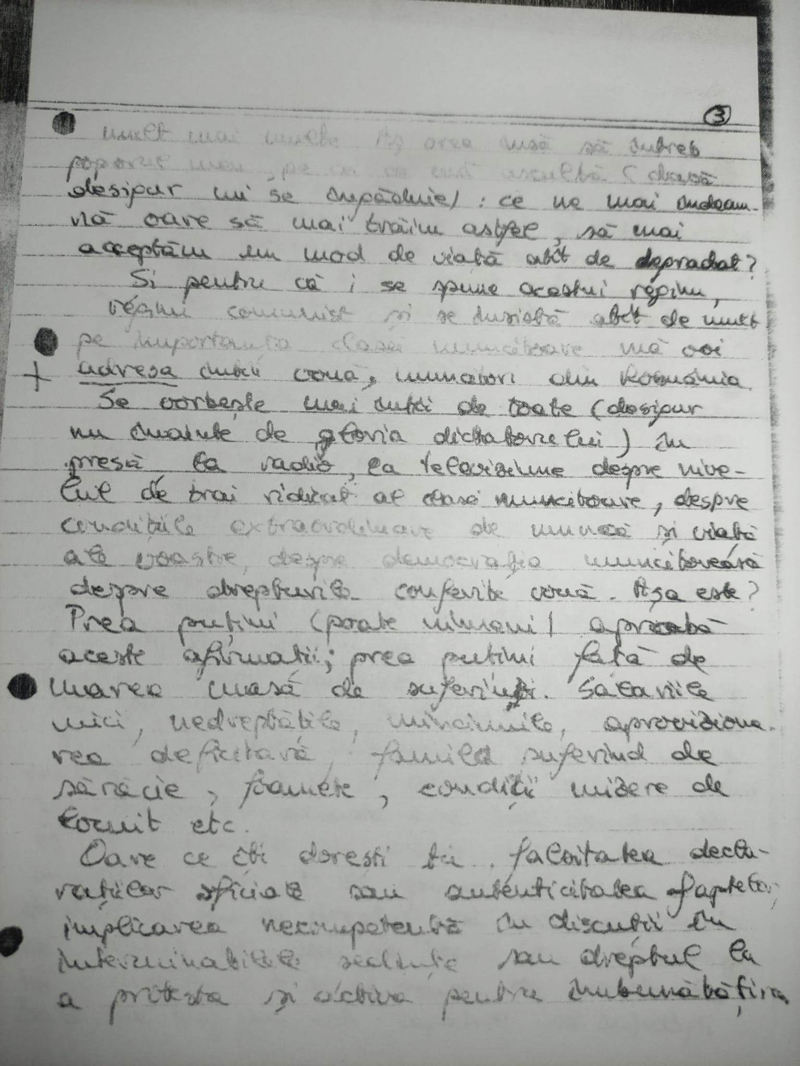 3
mult mai multe Aș vrea însă să întreb
poporul meu, pe cei ce mă ascultă (dacă
desigur nu se împădnie) : ce ne mai îndeam-
nă oare să mai trăim astfel, să mai
acceptăm un mod de viață atît de degradat?
Și pentru că i se spune acestui regim,
regim comunist și se insistă atît de mult
pe importanta clasă muncitoare mă voi
+ adresa întîi vouă, muncitori din România.
Se vorbește mai întîi de toate (desigur
nu înainte de gloria dictatorului) în
presă la radio, la televiziune despre nive-
lul de trai ridicat al clasei muncitoare, despre
condițiile extraordinare de muncă și viață
ale voastre, despre democrația muncitorească
despre drepturile conferite vouă. Așa este?
Prea puțini (poate nimeni) aprobă
aceste afirmații; prea puțini față de
marea masă de suferinzi. Salariile
mici, nedreptățile, minciunile, aproviziona-
rea deficitară, familii suferind de
sărăcie, foamete, condiții mizere de
locuit etc.
Oare ce îți dorești tu, falsitatea decla-
rațiilor oficiale sau autenticitatea faptelor,
implicarea necompetentă în discuții în
interminabilele ședințe sau dreptul la
a protesta și activa pentru îmbunătățirea